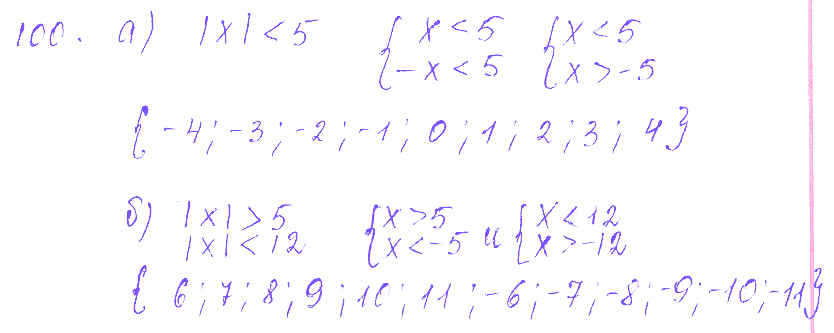 100. а) |x| < 5 { x < 5 { x < 5
{ -x < 5 { x > -5
{ -4; -3; -2; -1; 0; 1; 2; 3; 4 }
б) |x| > 5 { x > 5 и { x < 12
|x| < 12 { x < -5 { x > -12
{ 6; 7; 8; 9; 10; 11; -6; -7; -8; -9; -10; -11 }